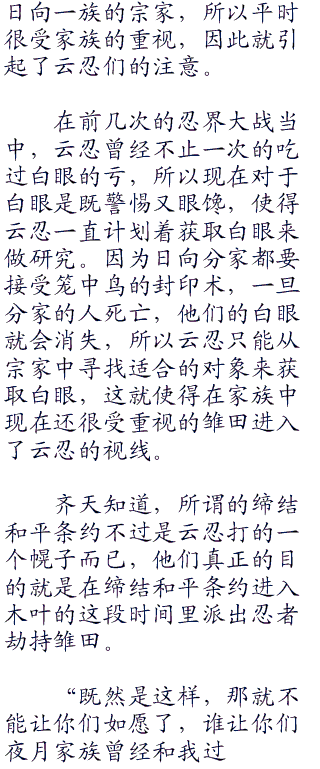 日向一族的宗家，所以平时
很受家族的重视，因此就引
起了云忍们的注意。
在前几次的忍界大战当
中，云忍曾经不止一次的吃
过白眼的亏，所以现在对于
白眼是既警惕又眼馋，使得
云忍一直计划着获取白眼来
做研究。因为日向分家都要
接受笼中鸟的封印术，一旦
分家的人死亡，他们的白眼
就会消失，所以云忍只能从
宗家中寻找适合的对象来获
取白眼，这就使得在家族中
现在还很受重视的雏田进入
了云忍的视线。
齐天知道，所谓的缔结
和平条约不过是云忍打的一
个幌子而已，他们真正的目
的就是在缔结和平条约进入
木叶的这段时间里派出忍者
劫持雏田。
“既然是这样，那就不
能让你们如愿了，谁让你们
夜月家族曾经和我过